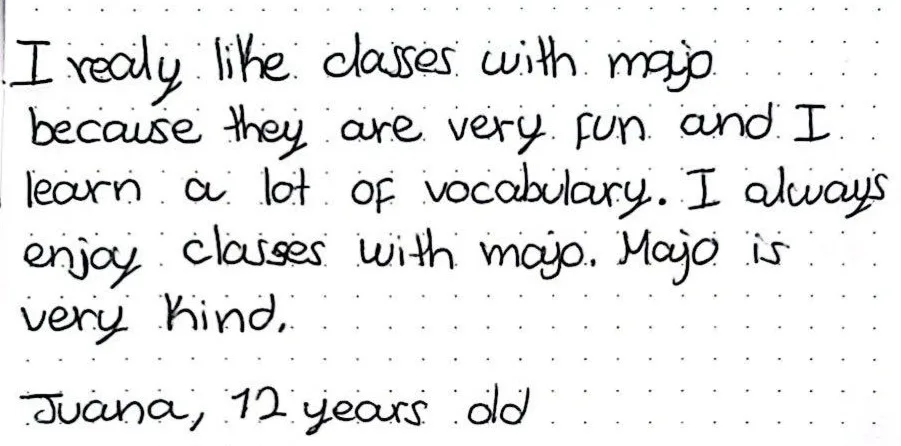 I realy like classes with majo
because they are very fun and I
learn a lot of vocabulary. I always
enjoy classes with majo. Majo is
very kind.
Juana, 12 years old